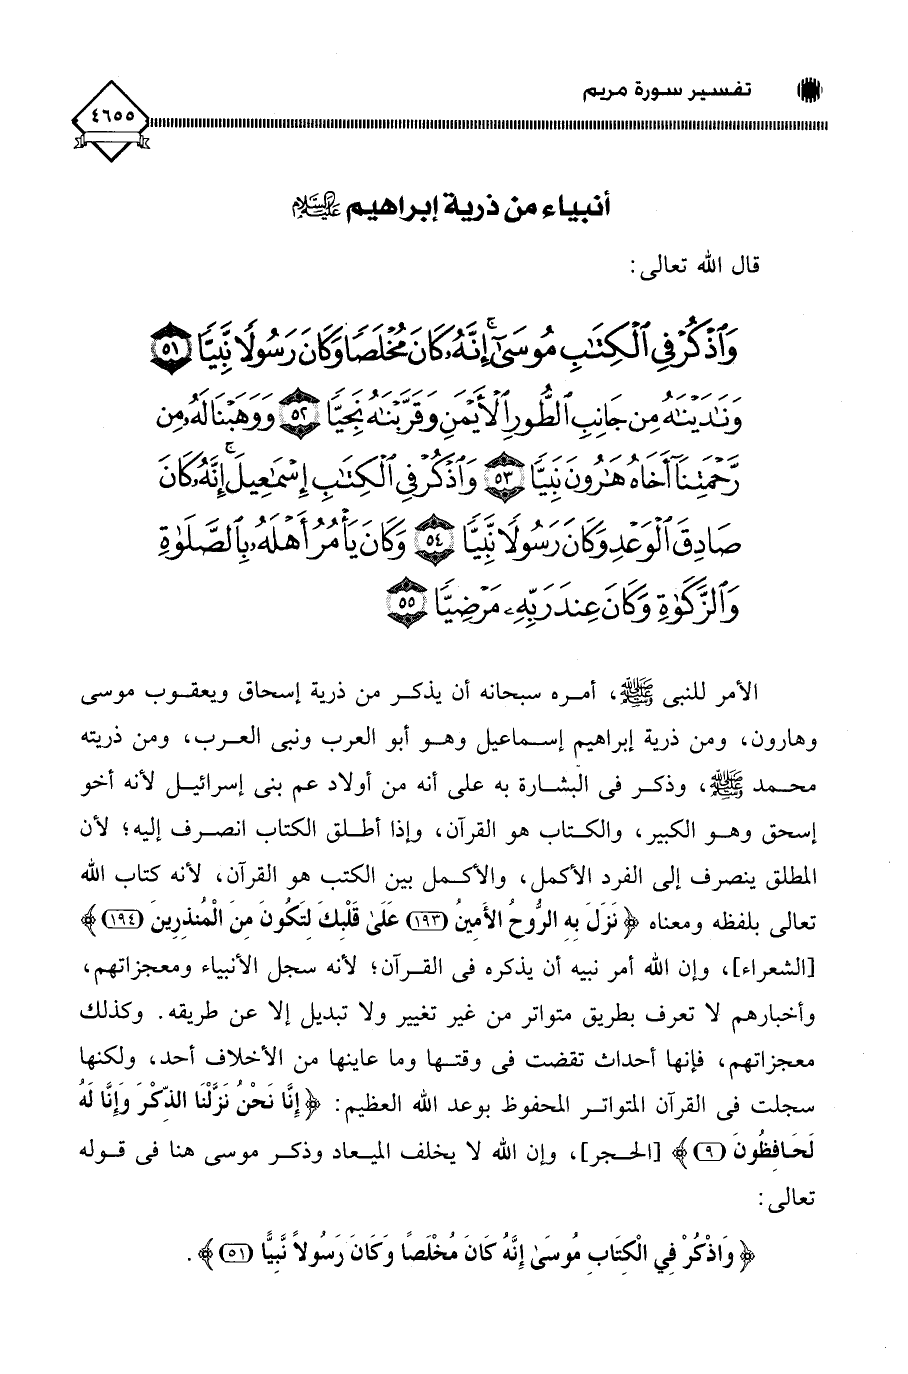 تفسير سورة مريم
٤٦٥٥
أنبياء من ذرية إبراهيم عليه السلام
قال الله تعالى:
وَٱذْكُرْ فِى ٱلْكِتَٰبِ مُوسَىٰٓ ۚ إِنَّهُۥ كَانَ مُخْلَصًا وَكَانَ رَسُولًا نَّبِيًّا ٥١
وَنَٰدَيْنَٰهُ مِن جَانِبِ ٱلطُّورِ ٱلْأَيْمَنِ وَقَرَّبْنَٰهُ نَجِيًّا ٥٢ وَوَهَبْنَا لَهُۥ مِن
رَّحْمَتِنَآ أَخَاهُ هَٰرُونَ نَبِيًّا ٥٣ وَٱذْكُرْ فِى ٱلْكِتَٰبِ إِسْمَٰعِيلَ ۚ إِنَّهُۥ كَانَ
صَادِقَ ٱلْوَعْدِ وَكَانَ رَسُولًا نَّبِيًّا ٥٤ وَكَانَ يَأْمُرُ أَهْلَهُۥ بِٱلصَّلَوٰةِ
وَٱلزَّكَوٰةِ وَكَانَ عِندَ رَبِّهِۦ مَرْضِيًّا ٥٥
الأمر للنبى ﷺ، أمره سبحانه أن يذكر من ذرية إسحاق ويعقوب موسى
وهارون، ومن ذرية إبراهيم إسماعيل وهو أبو العرب ونبى العرب، ومن ذريته
محمد ﷺ، وذكر فى البشارة به على أنه من أولاد عم بنى إسرائيل لأنه أخو
إسحق وهو الكبير، والكتاب هو القرآن، وإذا أطلق الكتاب انصرف إليه؛ لأن
المطلق ينصرف إلى الفرد الأكمل، والأكمل بين الكتب هو القرآن، لأنه كتاب الله
تعالى بلفظه ومعناه ﴿ نَزَلَ بِهِ الرُّوحُ الأَمِينُ (١٩٣) عَلَىٰ قَلْبِكَ لِتَكُونَ مِنَ الْمُنذِرِينَ (١٩٤) ﴾
[الشعراء]، وإن الله أمر نبيه أن يذكره فى القرآن؛ لأنه سجل الأنبياء ومعجزاتهم،
وأخبارهم لا تعرف بطريق متواتر من غير تغيير ولا تبديل إلا عن طريقه. وكذلك
معجزاتهم، فإنها أحداث تقضت فى وقتها وما عاينها من الأخلاف أحد، ولكنها
سجلت فى القرآن المتواتر المحفوظ بوعد الله العظيم: ﴿ إِنَّا نَحْنُ نَزَّلْنَا الذِّكْرَ وَإِنَّا لَهُ
لَحَافِظُونَ (٩) ﴾ [الحجر]، وإن الله لا يخلف الميعاد وذكر موسى هنا فى قوله
تعالى:
﴿ وَاذْكُرْ فِي الْكِتَابِ مُوسَىٰ إِنَّهُ كَانَ مُخْلَصًا وَكَانَ رَسُولاً نَّبِيًّا (٥١) ﴾.